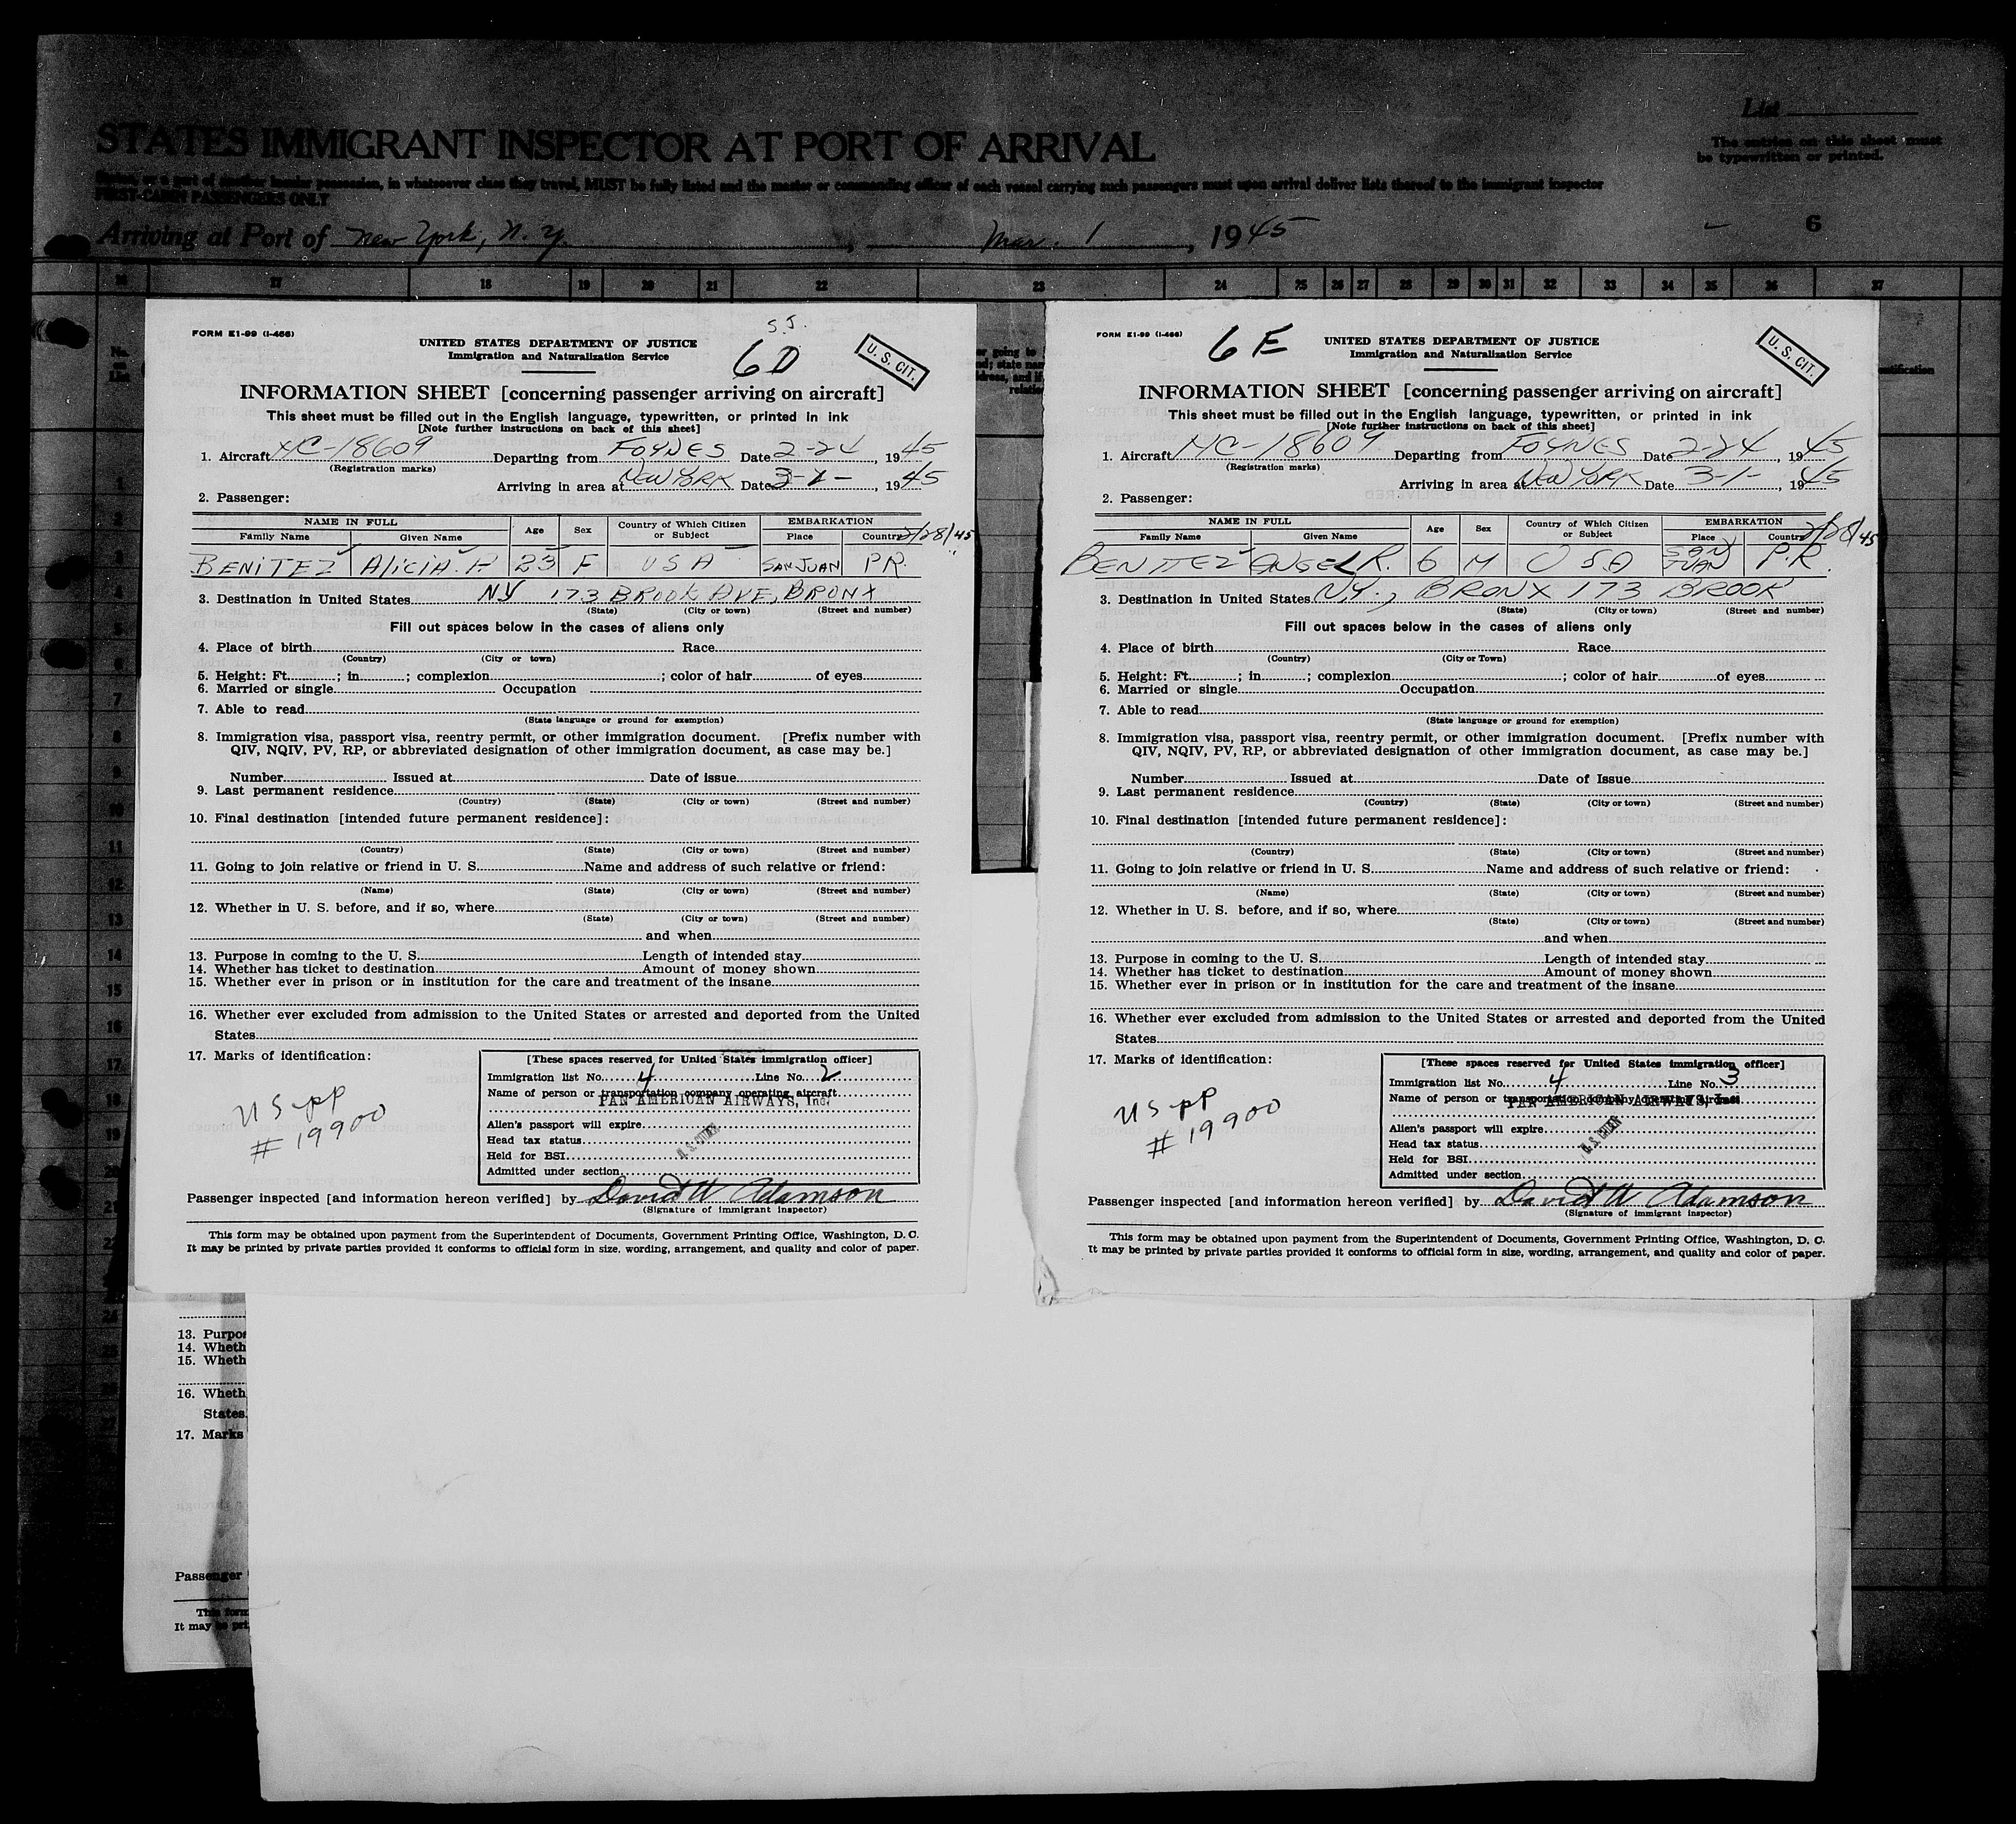 List
STATES IMMIGRANT INSPECTOR AT PORT OF ARRIVAL
The entries on this sheet must
be typewritten or printed.
in whatsoever class they travel, MUST be fully listed and the master or commanding officer of each vessel carrying such passengers must upon arrival deliver lists thereof to the immigrant inspector
FIRST-CABIN PASSENGERS ONLY
Arriving at Port of New York, N. Y. , Mar. 1 , 1945
6
17 18 19 20 21 22 23 24 25 26 27 28 29 30 31 32 33 34 35 36 37
FORM E1-99 (I-466)
S.J.
UNITED STATES DEPARTMENT OF JUSTICE
Immigration and Naturalization Service
6D
U. S. CIT.
INFORMATION SHEET [concerning passenger arriving on aircraft]
This sheet must be filled out in the English language, typewritten, or printed in ink
[Note further instructions on back of this sheet]
1. Aircraft NC-18609 Departing from FOYNES Date 2-24, 1945
(Registration marks)
Arriving in area at NEW YORK Date 3-1-, 1945
2. Passenger:
NAME IN FULL Age Sex Country of Which Citizen or Subject EMBARKATION
Family Name Given Name Place Country 2/28/45
BENITEZ ALICIA. P. 23 F USA SAN JUAN PR.
3. Destination in United States NY 173 BROOK AVE, BRONX
(State) (City or town) (Street and number)
Fill out spaces below in the cases of aliens only
4. Place of birth Race
(Country) (City or town)
5. Height: Ft. ; in. ; complexion ; color of hair of eyes
6. Married or single Occupation
7. Able to read
(State language or ground for exemption)
8. Immigration visa, passport visa, reentry permit, or other immigration document. [Prefix number with
QIV, NQIV, PV, RP, or abbreviated designation of other immigration document, as case may be.]
Number Issued at Date of issue
9. Last permanent residence
(Country) (State) (City or town) (Street and number)
10. Final destination [intended future permanent residence]:
(Country) (State) (City or town) (Street and number)
11. Going to join relative or friend in U. S. Name and address of such relative or friend:
(Name) (State) (City or town) (Street and number)
12. Whether in U. S. before, and if so, where
(State) (City or town) (Street and number)
and when
13. Purpose in coming to the U. S. Length of intended stay
14. Whether has ticket to destination Amount of money shown
15. Whether ever in prison or in institution for the care and treatment of the insane
16. Whether ever excluded from admission to the United States or arrested and deported from the United
States
17. Marks of identification:
US PP
# 19900
[These spaces reserved for United States immigration officer]
Immigration list No. 4 Line No. 2
Name of person or transportation company operating aircraft
PAN AMERICAN AIRWAYS, Inc.
Alien's passport will expire
Head tax status
U. S. CITIZEN
Held for BSI
Admitted under section
Passenger inspected [and information hereon verified] by David W Adamson
(Signature of immigrant inspector)
This form may be obtained upon payment from the Superintendent of Documents, Government Printing Office, Washington, D. C.
It may be printed by private parties provided it conforms to official form in size, wording, arrangement, and quality and color of paper.
FORM E1-99 (I-466)
6E
UNITED STATES DEPARTMENT OF JUSTICE
Immigration and Naturalization Service
U. S. CIT.
INFORMATION SHEET [concerning passenger arriving on aircraft]
This sheet must be filled out in the English language, typewritten, or printed in ink
[Note further instructions on back of this sheet]
1. Aircraft NC-18609 Departing from FOYNES Date 2-24, 1945
(Registration marks)
Arriving in area at NEW YORK Date 3-1-, 1945
2. Passenger:
NAME IN FULL Age Sex Country of Which Citizen or Subject EMBARKATION
Family Name Given Name Place Country 2/28/45
BENITEZ ANGEL R. 6 M USA SAN JUAN P.R.
3. Destination in United States N.Y., BRONX 173 BROOK
(State) (City or town) (Street and number)
Fill out spaces below in the cases of aliens only
4. Place of birth Race
(Country) (City or Town)
5. Height: Ft. ; in. ; complexion ; color of hair of eyes
6. Married or single Occupation
7. Able to read
(State language or ground for exemption)
8. Immigration visa, passport visa, reentry permit, or other immigration document. [Prefix number with
QIV, NQIV, PV, RP, or abbreviated designation of other immigration document, as case may be.]
Number Issued at Date of Issue
9. Last permanent residence
(Country) (State) (City or town) (Street and number)
10. Final destination [intended future permanent residence]:
(Country) (State) (City or town) (Street and number)
11. Going to join relative or friend in U. S. Name and address of such relative or friend:
(Name) (State) (City or town) (Street and number)
12. Whether in U. S. before, and if so, where
(State) (City or town) (Street and number)
and when
13. Purpose in coming to the U. S. Length of intended stay
14. Whether has ticket to destination Amount of money shown
15. Whether ever in prison or in institution for the care and treatment of the insane
16. Whether ever excluded from admission to the United States or arrested and deported from the United
States
17. Marks of identification:
US PP
# 19900
[These spaces reserved for United States immigration officer]
Immigration list No. 4 Line No. 3
Name of person or transportation company operating aircraft
PAN AMERICAN AIRWAYS, Inc.
Alien's passport will expire
Head tax status
U. S. CITIZEN
Held for BSI
Admitted under section
Passenger inspected [and information hereon verified] by David W Adamson
(Signature of immigrant inspector)
This form may be obtained upon payment from the Superintendent of Documents, Government Printing Office, Washington, D. C.
It may be printed by private parties provided it conforms to official form in size, wording, arrangement, and quality and color of paper.
13. Purpo
14. Wheth
15. Wheth
16. Wheth
States
17. Marks
Passenger
This form
It may be pri